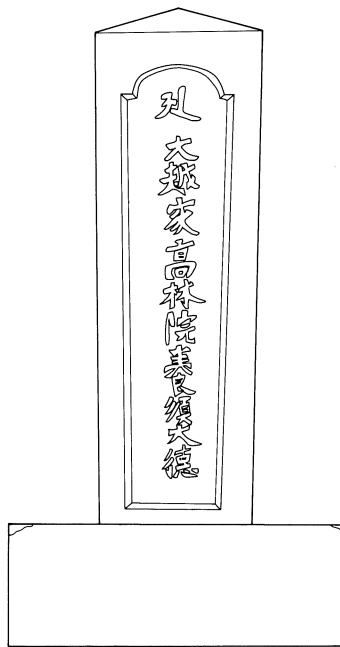 大越家高林院養須大徳